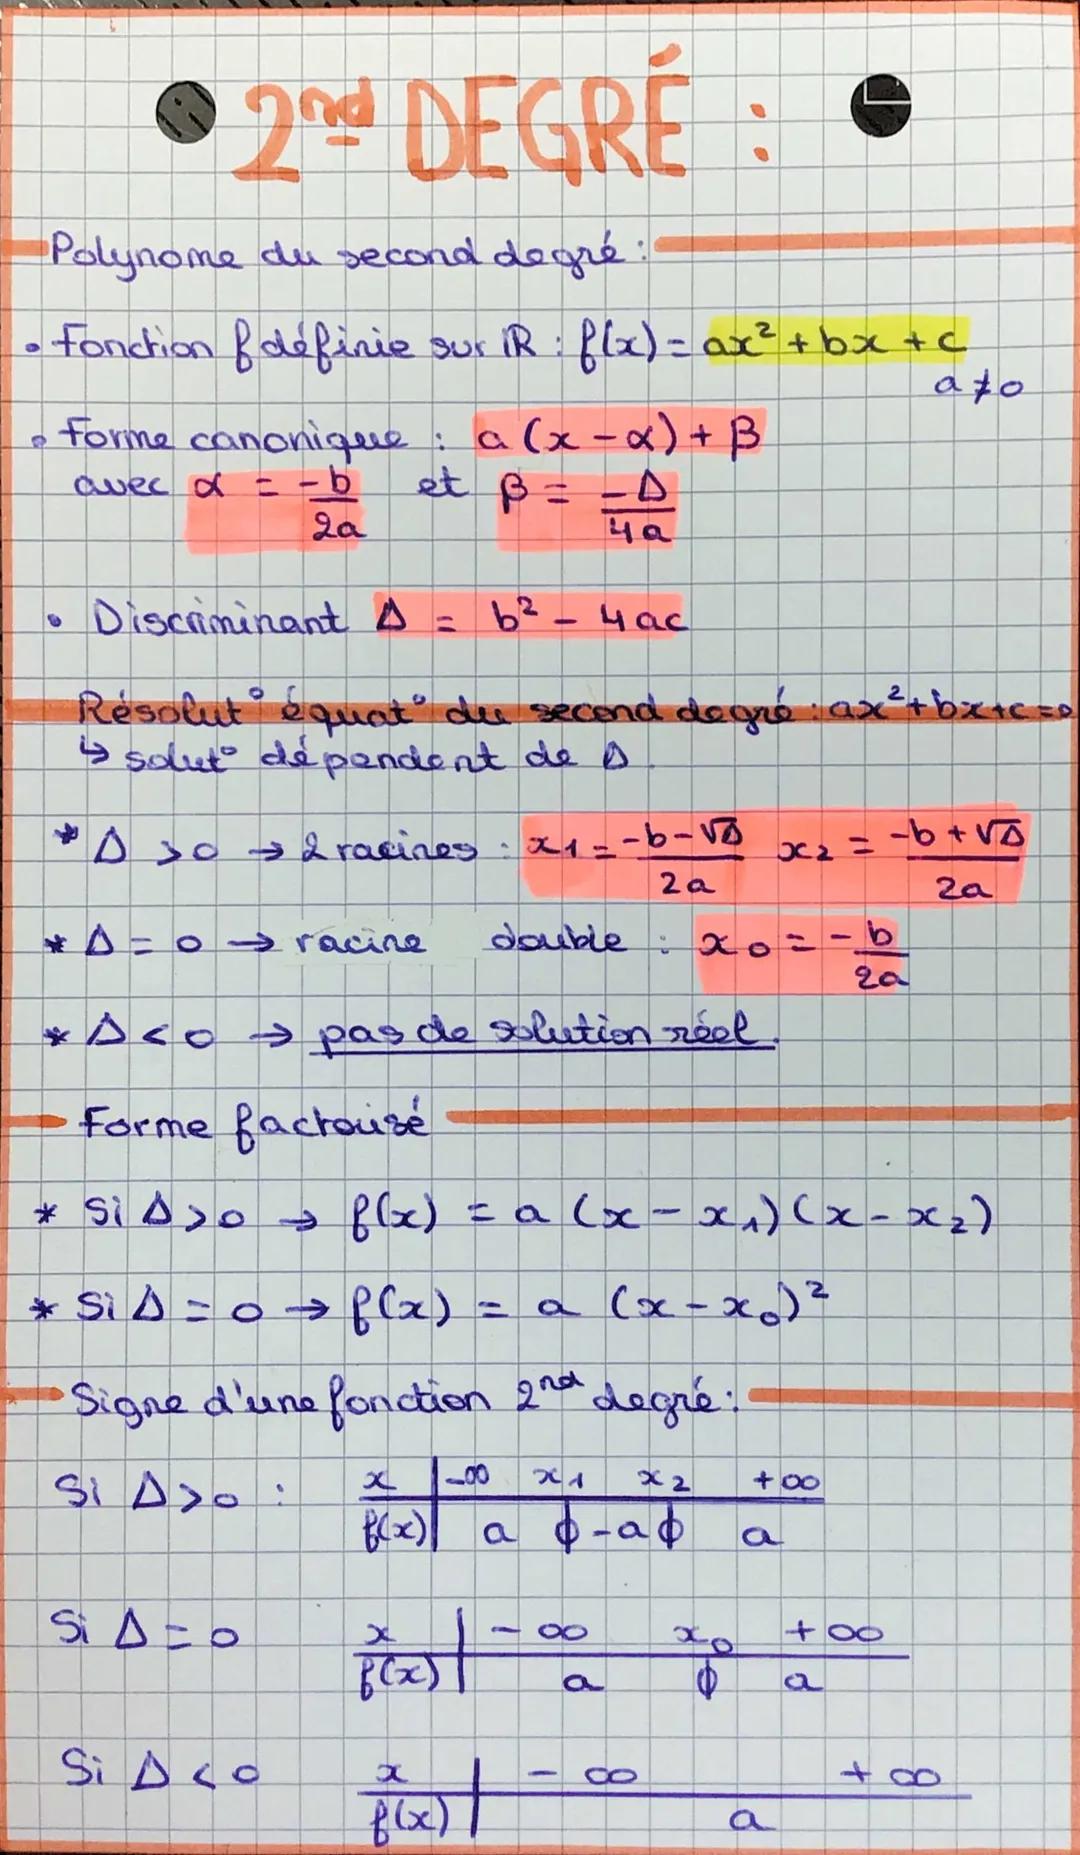 2nd DEGRÉ :
Polynome du second degré :
• Fonction f définie sur ℝ : f(x) = ax² + bx + c
a ≠ 0
• Forme canonique : a (x - α) + β
avec α = -b/2a et β = -Δ/4a
• Discriminant Δ = b² - 4ac
Résolut° équat° du second degré : ax² + bx + c = 0
↳ solut° dépendent de Δ.
* Δ > 0 → 2 racines : x1 = -b-√Δ/2a x2 = -b+√Δ/2a
* Δ = 0 → racine double : x0 = -b/2a
* Δ < 0 → pas de solution réel.
Forme factorisé
* Si Δ > 0 → f(x) = a (x - x₁)(x - x₂)
* Si Δ = 0 → f(x) = a (x - x₀)²
Signe d'une fonction 2nd degré :
Si Δ > 0 : x | -∞ x1 x2 +∞
f(x) | a ϕ -a ϕ a
Si Δ = 0 x | -∞ x₀ +∞
f(x) | a ϕ a
Si Δ < 0 x | -∞ +∞
f(x) | a